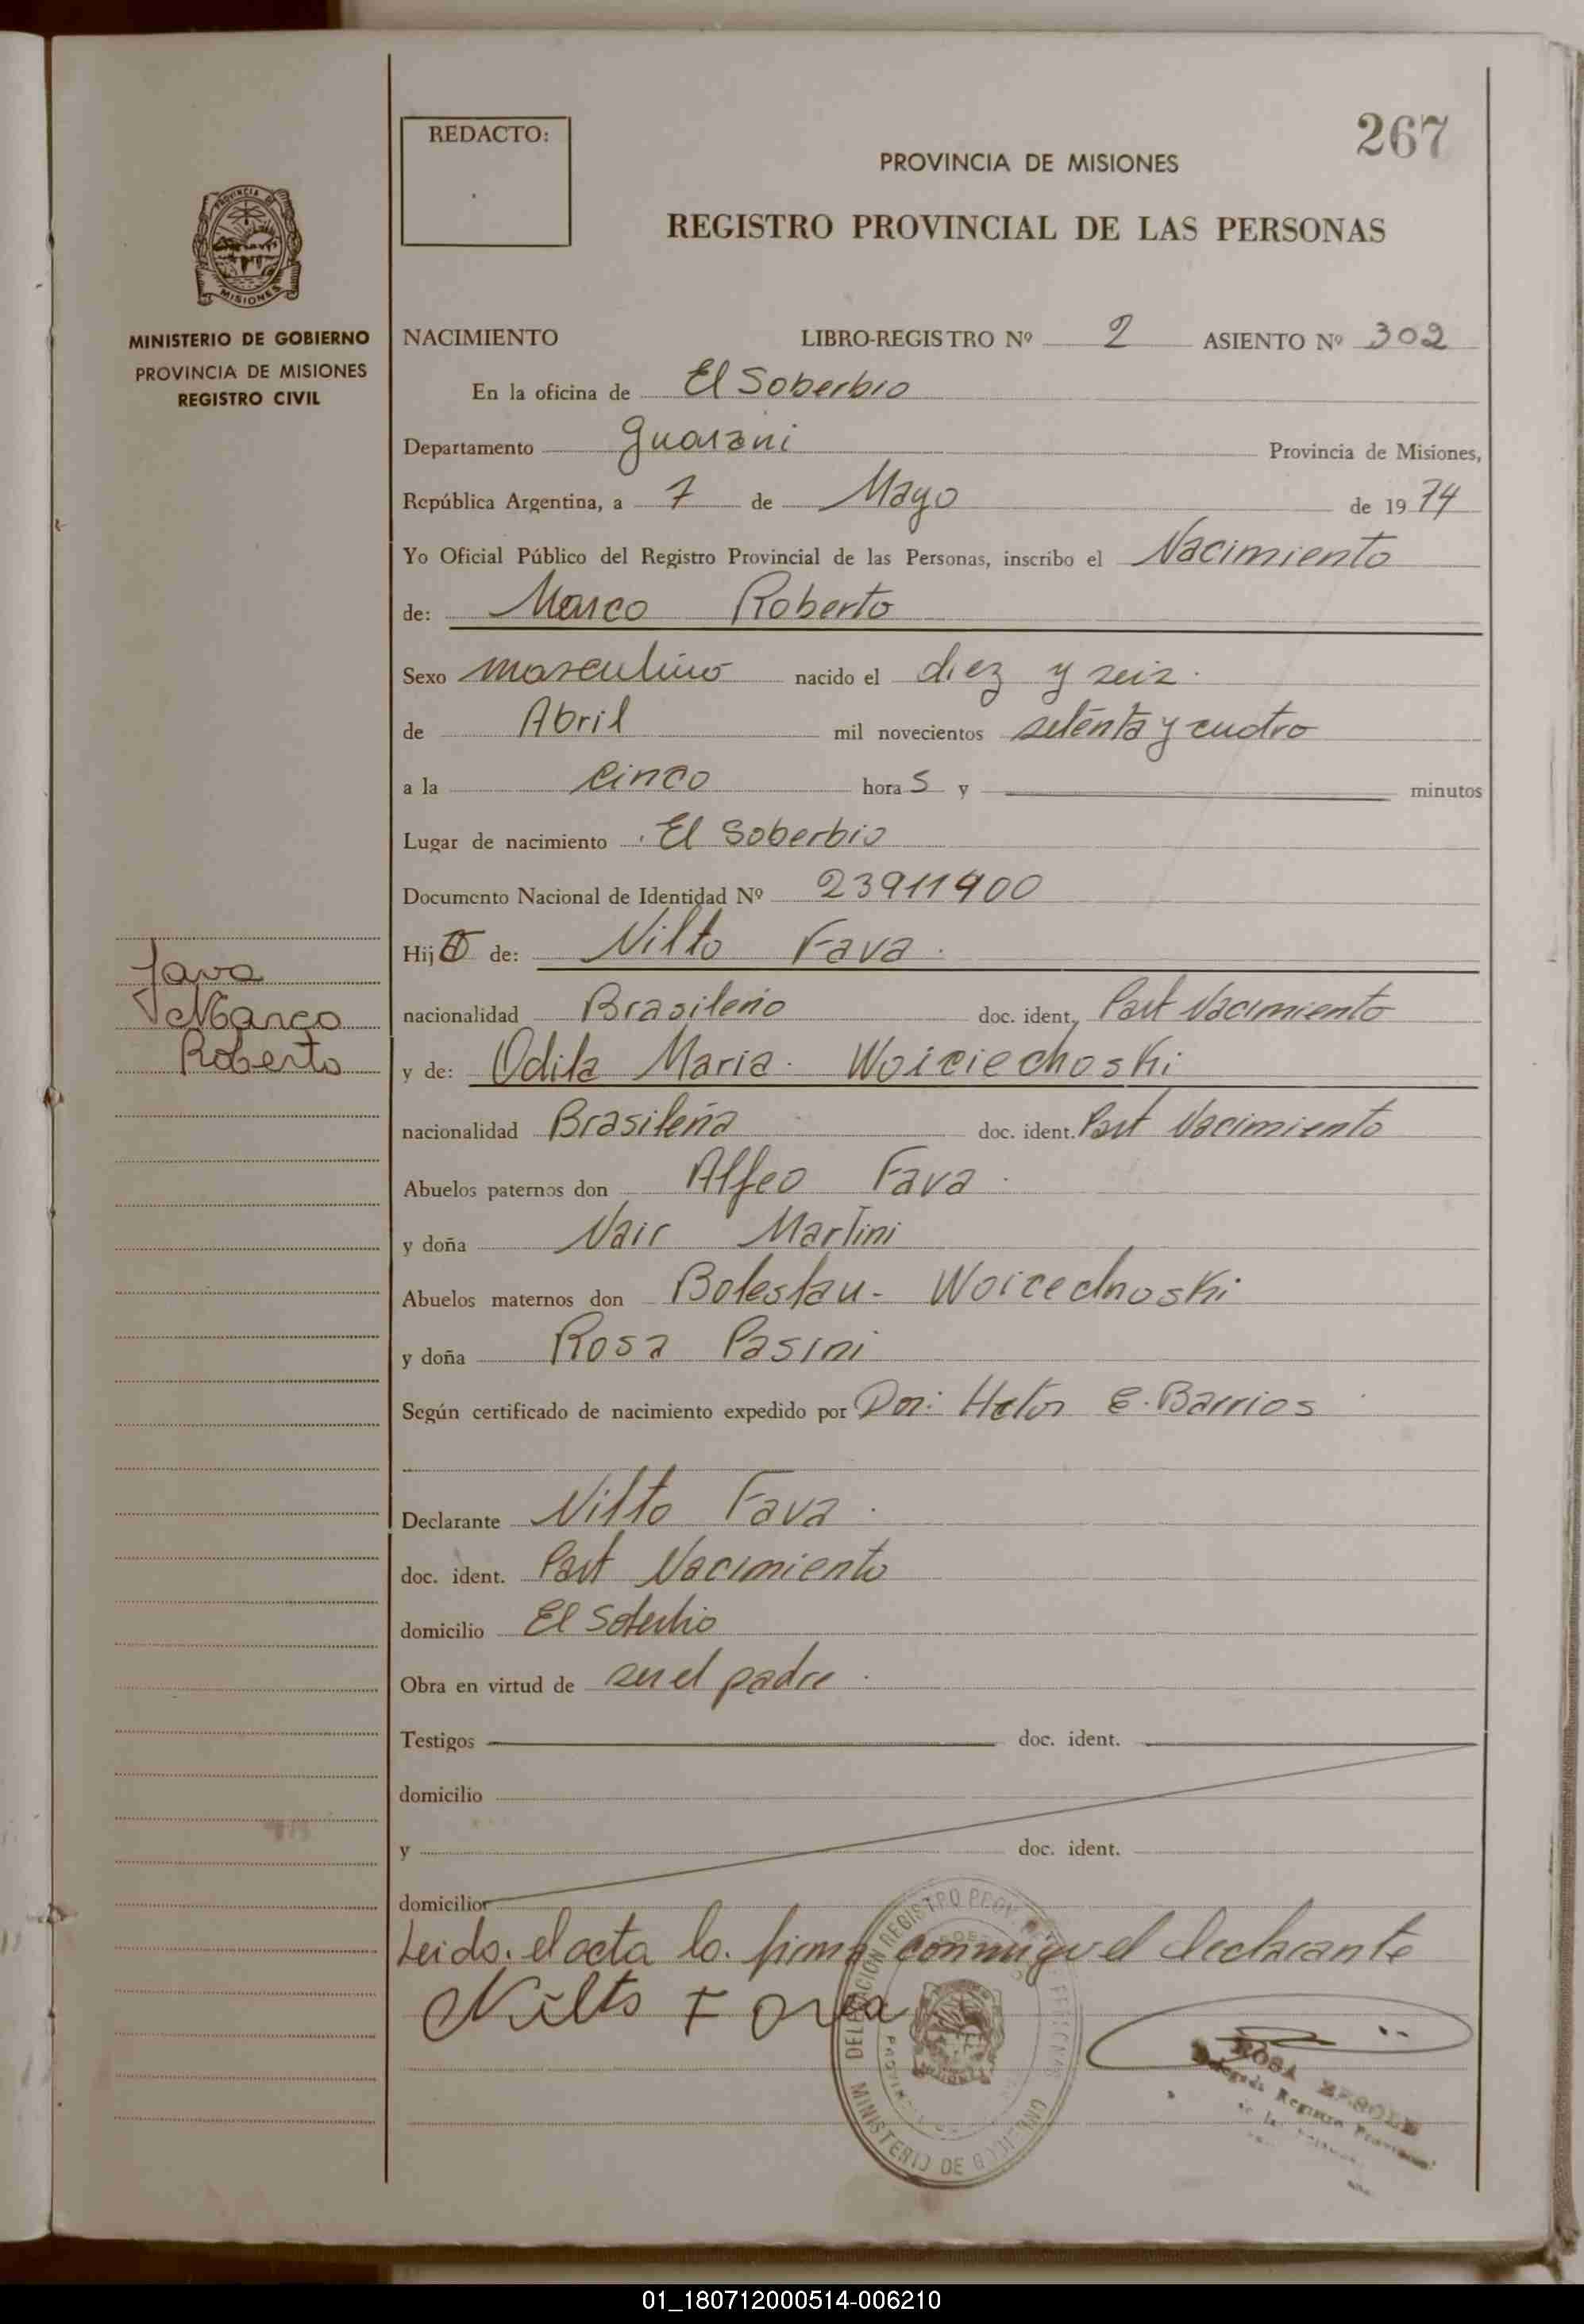 267
REDACTO:
PROVINCIA DE MISIONES
REGISTRO PROVINCIAL DE LAS PERSONAS
PROVINCIA DE
MISIONES
MINISTERIO DE GOBIERNO
PROVINCIA DE MISIONES
REGISTRO CIVIL
NACIMIENTO LIBRO-REGISTRO Nº 2 ASIENTO Nº 302
En la oficina de El Soberbio
Departamento Guarani Provincia de Misiones,
República Argentina, a 7 de Mayo de 1974
Yo Oficial Público del Registro Provincial de las Personas, inscribo el Nacimiento
de: Marco Roberto
Sexo masculino nacido el diez y seis.
de Abril mil novecientos setenta y cuatro
a la cinco horas y minutos
Lugar de nacimiento El Soberbio
Documento Nacional de Identidad Nº 23911900
Hijo de: Nilto Fava.
nacionalidad Brasileño doc. ident. Part Nacimiento
y de: Odila Maria. Woiciechoski
nacionalidad Brasileña doc. ident. Part Nacimiento
Abuelos paternos don Alfeo Fava.
y doña Nair Martini
Abuelos maternos don Boleslau- Woicechoski
y doña Rosa Pasini
Según certificado de nacimiento expedido por Dor: Hetor E. Barrios
Declarante Nilto Fava.
doc. ident. Part Nacimiento
domicilio El Soberbio
Obra en virtud de ser el padre.
Testigos doc. ident.
domicilio
y doc. ident.
domicilio
Leido. el acta lo. firma conmigo el declarante
Nilto Fava
Fava
Marco
Roberto
DELEGACION REGISTRO PROV. DE LAS PERSONAS
MINISTERIO DE GOBIERNO
ROSA
Delegada Registro Provincial
de las
01_180712000514-006210